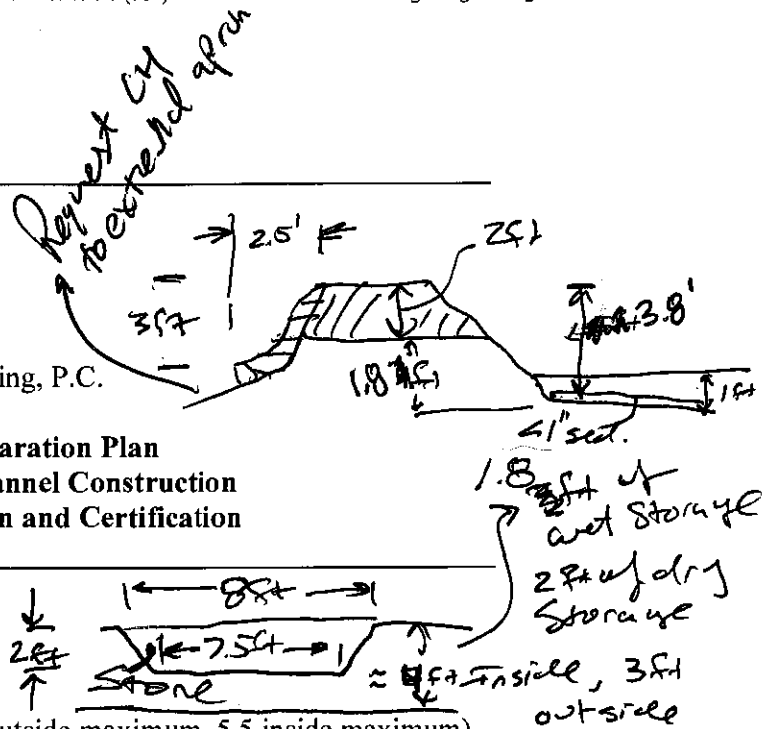 Request CM
to extend apron
2.5'
2ft
3ft
3.8'
1.8 ft
1ft
ing, P.C.
<1" sed.
aration Plan
annel Construction
n and Certification
1.8 ft of
wet Storage
2 ft of dry
Storage
8ft
2ft
7.5ft
Stone
≈ ft Inside, 3ft
outside
utside maximum, 5.5 inside maximum)